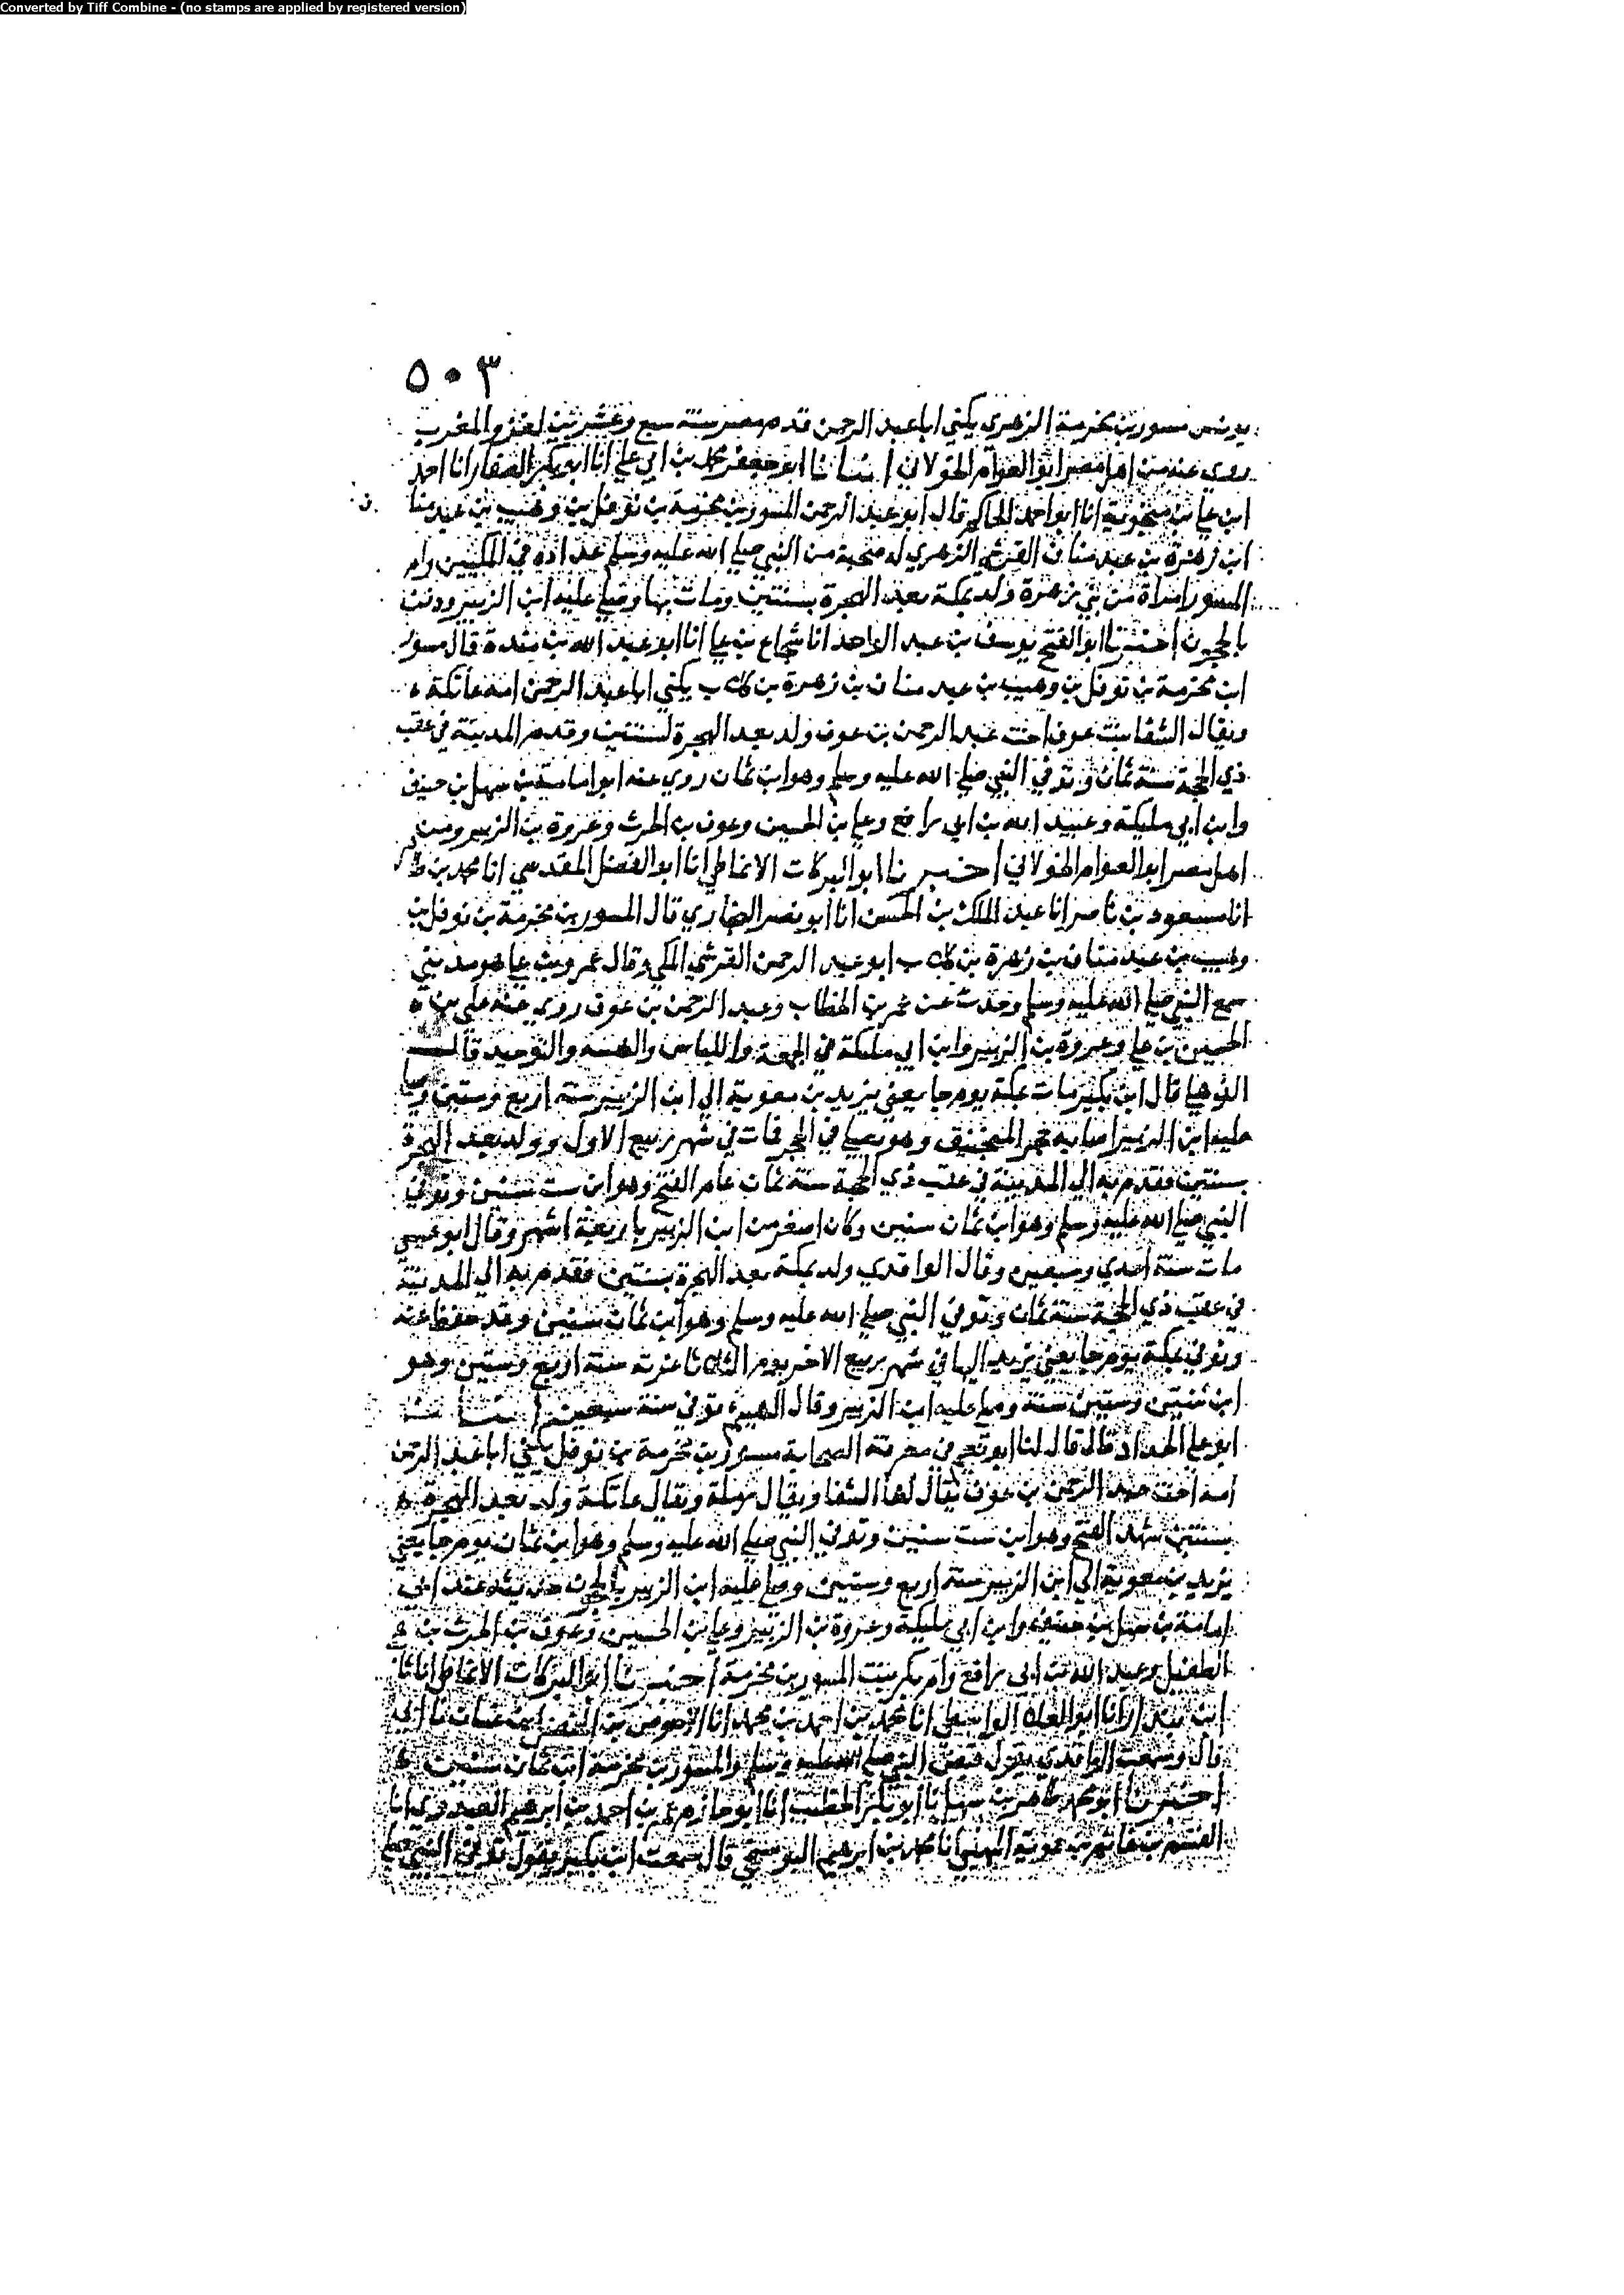 Converted by Tiff Combine - (no stamps are applied by registered version)
٥٠٣
يونس مسور بن مخرمة الزهري يكنى ابا عبد الرحمن قدم مصر سنة سبع وعشرين لغزو المغرب
روى عنه من اهل مصر ابو العوام الخولاني انبانا ابو جعفر محمد بن ابي علي انا ابو بكر الصفار انا احمد
ابن علي بن منجويه انا ابو احمد الحاكم قال ابو عبد الرحمن المسور بن مخرمة بن نوفل بن وهيب بن عبد منا ف
ابن زهرة بن عبد مناف القرشي الزهري له صحبة من النبي صلى الله عليه وسلم عداده في المكيين وام
المسور امراة من بني زهرة ولد بمكة بعد الهجرة بسنتين ومات بها وصلى عليه ابن الزبير ودفن
بالحجون اخبرنا ابو الفتح يوسف بن عبد الواحد انا شجاع بن علي انا ابو عبد الله بن مندة قال مسور
ابن مخرمة بن نوفل بن وهيب بن عبد مناف بن زهرة بن كلاب يكنى ابا عبد الرحمن امه عاتكة
ويقال الشفا بنت عوف اخت عبد الرحمن بن عوف ولد بعد الهجرة لسنتين وقدم المدينة في عقب
ذي الحجة سنة ثمان وتوفي النبي صلى الله عليه وسلم وهو ابن ثمان روى عنه ابو امامة بن سهل بن حنيف
وابن ابي مليكة وعبيد الله بن ابي رافع وعلي بن الحسين وعوف بن الحرث وعروة بن الزبير ومن
اهل مصر ابو العوام الخولاني اخبرنا ابو البركات الانماطي انا ابو الفضل المقدسي انا محمد بن طاهر
انا مسعود بن ناصر انا عبد الملك بن الحسن انا ابو نصر البخاري قال المسور بن مخرمة بن نوفل بن
وهيب بن عبد مناف بن زهرة بن كلاب ابو عبد الرحمن القرشي المكي وقال عمرو بن علي هو مديني
سمع النبي صلى الله عليه وسلم وحدث عن عمر بن الخطاب وعبد الرحمن بن عوف روى عنه علي بن
الحسين بن علي وعروة بن الزبير وابن ابي مليكة في الجمعة واللباس والتوحيد قال
الذهلي قال ابن بكير مات بمكة يوم جا يعني يزيد بن معوية الى ابن الزبير سنة اربع وستين وصلى
عليه ابن الزبير اصابه حجر المنجنيق وهو يصلي في الحجر فمات في شهر ربيع الاول وولد بعد الهجرة
بسنتين فقدم به الى المدينة في عقب ذي الحجة سنة ثمان عام الفتح وهو ابن ست سنين وتوفي
النبي صلى الله عليه وسلم وهو ابن ثمان سنين وكان اصغر من ابن الزبير باربعة اشهر وقال ابو عيسى
مات سنة احدى وسبعين وقال الواقدي ولد بمكة بعد الهجرة بسنتين فقدم به الى المدينة
في عقب ذي الحجة سنة ثمان وتوفي النبي صلى الله عليه وسلم وهو ابن ثمان سنين وقد حفظ عنه
وتوفي بمكة يوم جا يعني يزيد اليها في شهر ربيع الاخر سنة اربع وستين وهو
ابن ثنتين وستين سنة وصلى عليه ابن الزبير وقال الهيثم توفي سنة سبعين انبانا
ابو علي الحداد قال قال لنا ابو نعيم في معرفة الصحابة مسور بن مخرمة بن نوفل يكنى ابا عبد الرحمن
امه اخت عبد الرحمن بن عوف يقال لها الشفا ويقال رملة ويقال عاتكة ولد بعد الهجرة
بسنتين شهد الفتح وهو ابن ست سنين وتوفي النبي صلى الله عليه وسلم وهو ابن ثمان يوم جا يعني
يزيد بن معوية الى ابن الزبير سنة اربع وستين وصلى عليه ابن الزبير بالحجون حديثه عند ابي
امامة بن سهل بن حنيف وابن ابي مليكة وعروة بن الزبير وعلي بن الحسين وعوف بن الحرث بن
الطفيل وعبيد الله بن ابي رافع وام بكر بنت المسور بن مخرمة اخبرنا ابو البركات الانماطي انا ثابت
ابن بندار انا ابو العلا الواسطي انا محمد بن احمد بن محمد انا الاحوص بن المفضل بن غسان نا ابي
قال وسمعت الواقدي يقول قبض النبي صلى الله عليه وسلم والمسور بن مخرمة ابن ثمان سنين
اخبرنا ابو محمد طاهر بن سهل انا ابو بكر الخطيب انا ابو حازم عمر بن احمد بن ابرهيم العبدوي انا
القسم بن غانم بن حمويه المهلبي انا محمد بن ابرهيم البوشنجي قال سمعت ابن بكير يقول توفي النبي صلى